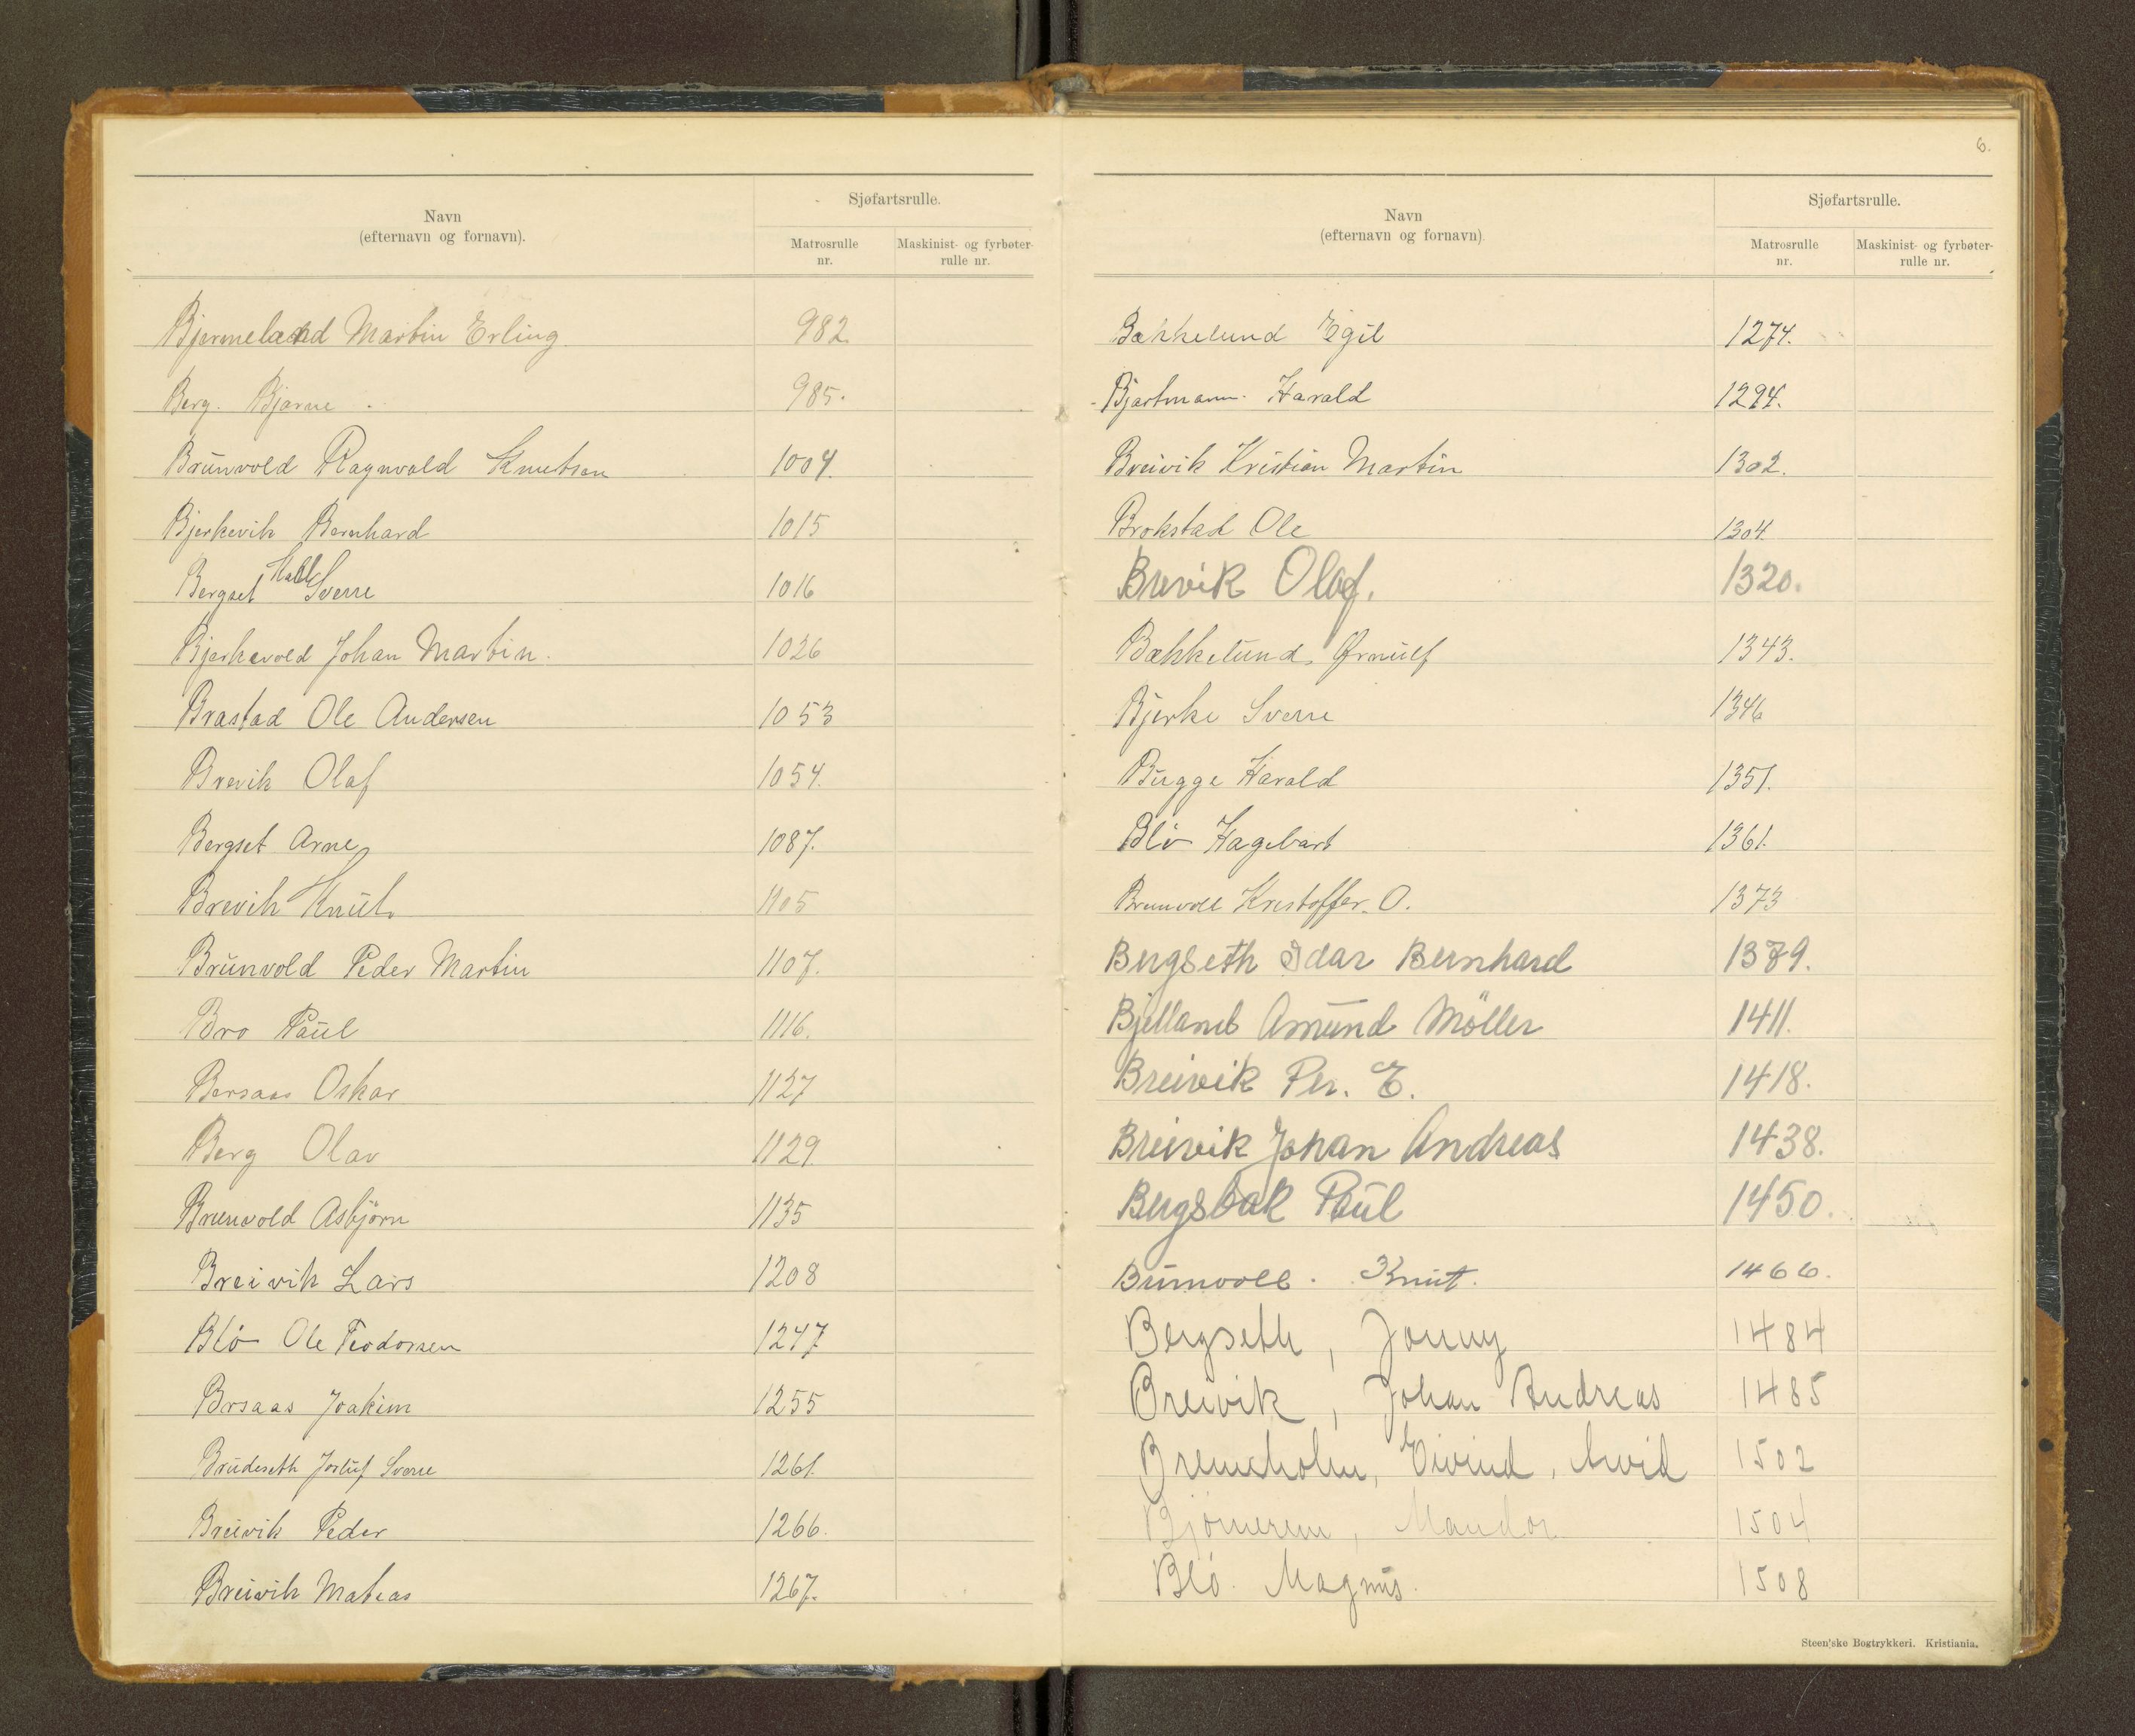 Navn
(efternavn og fornavn).
Sjøfartsrulle.
Matrosrulle
nr.
Maskinist- og fyrbøter-
rulle nr.
Bjermeland Martin Erling 982
Berg. Bjarne 985.
Brunvold Ragnvald Knutsen 1004.
Bjerkevik Bernhard 1015
Bergset Sverre 1016
Bjerkevold Johan Martin. 1026
Brastad Ole Andersen 1053
Brevik Olaf 1054.
Bergset Arne 1087.
Brevik Knut 1105
Brunvold Peder Martin 1107.
Bro Paul 1116.
Bersaas Oskar 1127
Berg Olav 1129
Brunvold Asbjörn 1135
Breivik Lars 1208
Blö Ole Teodorsen 1247
Brsaas Joakim 1255
Brudeseth Sverre 1261.
Breivik Peder 1266.
Breivik Mateas 1267.
6.
Navn
(efternavn og fornavn)
Sjøfartsrulle.
Matrosrulle
nr.
Maskinist- og fyrbøter-
rulle nr.
Bækkelund Egil 1274.
Bjartmann. Harald 1294.
Breivik Kristian Martin 1302.
Brokstad Ole 1304
Brevik Olaf. 1320.
Bækkelund, Ørnulf 1343.
Bjerke Sverre 1346
Bugge Harald 1351.
Blö Hagebart 1361.
Brunvoll Kristoffer. O. 1373
Bergseth Idar Bernhard 1379.
Bjelland Amund Möller 1411.
Breivik Per. E. 1418.
Breivik Johan Andreas 1438.
Bergsbak Paul 1450.
Brunvoll. Knut. 1466.
Bergseth, Jonny 1484
Breivik, Johan Andreas 1485
Bremsholm, Eivind, Arvid 1502
Bjömerem, Mandor 1504
Blö. Magnus. 1508
Steen'ske Bogtrykkeri. Kristiania.